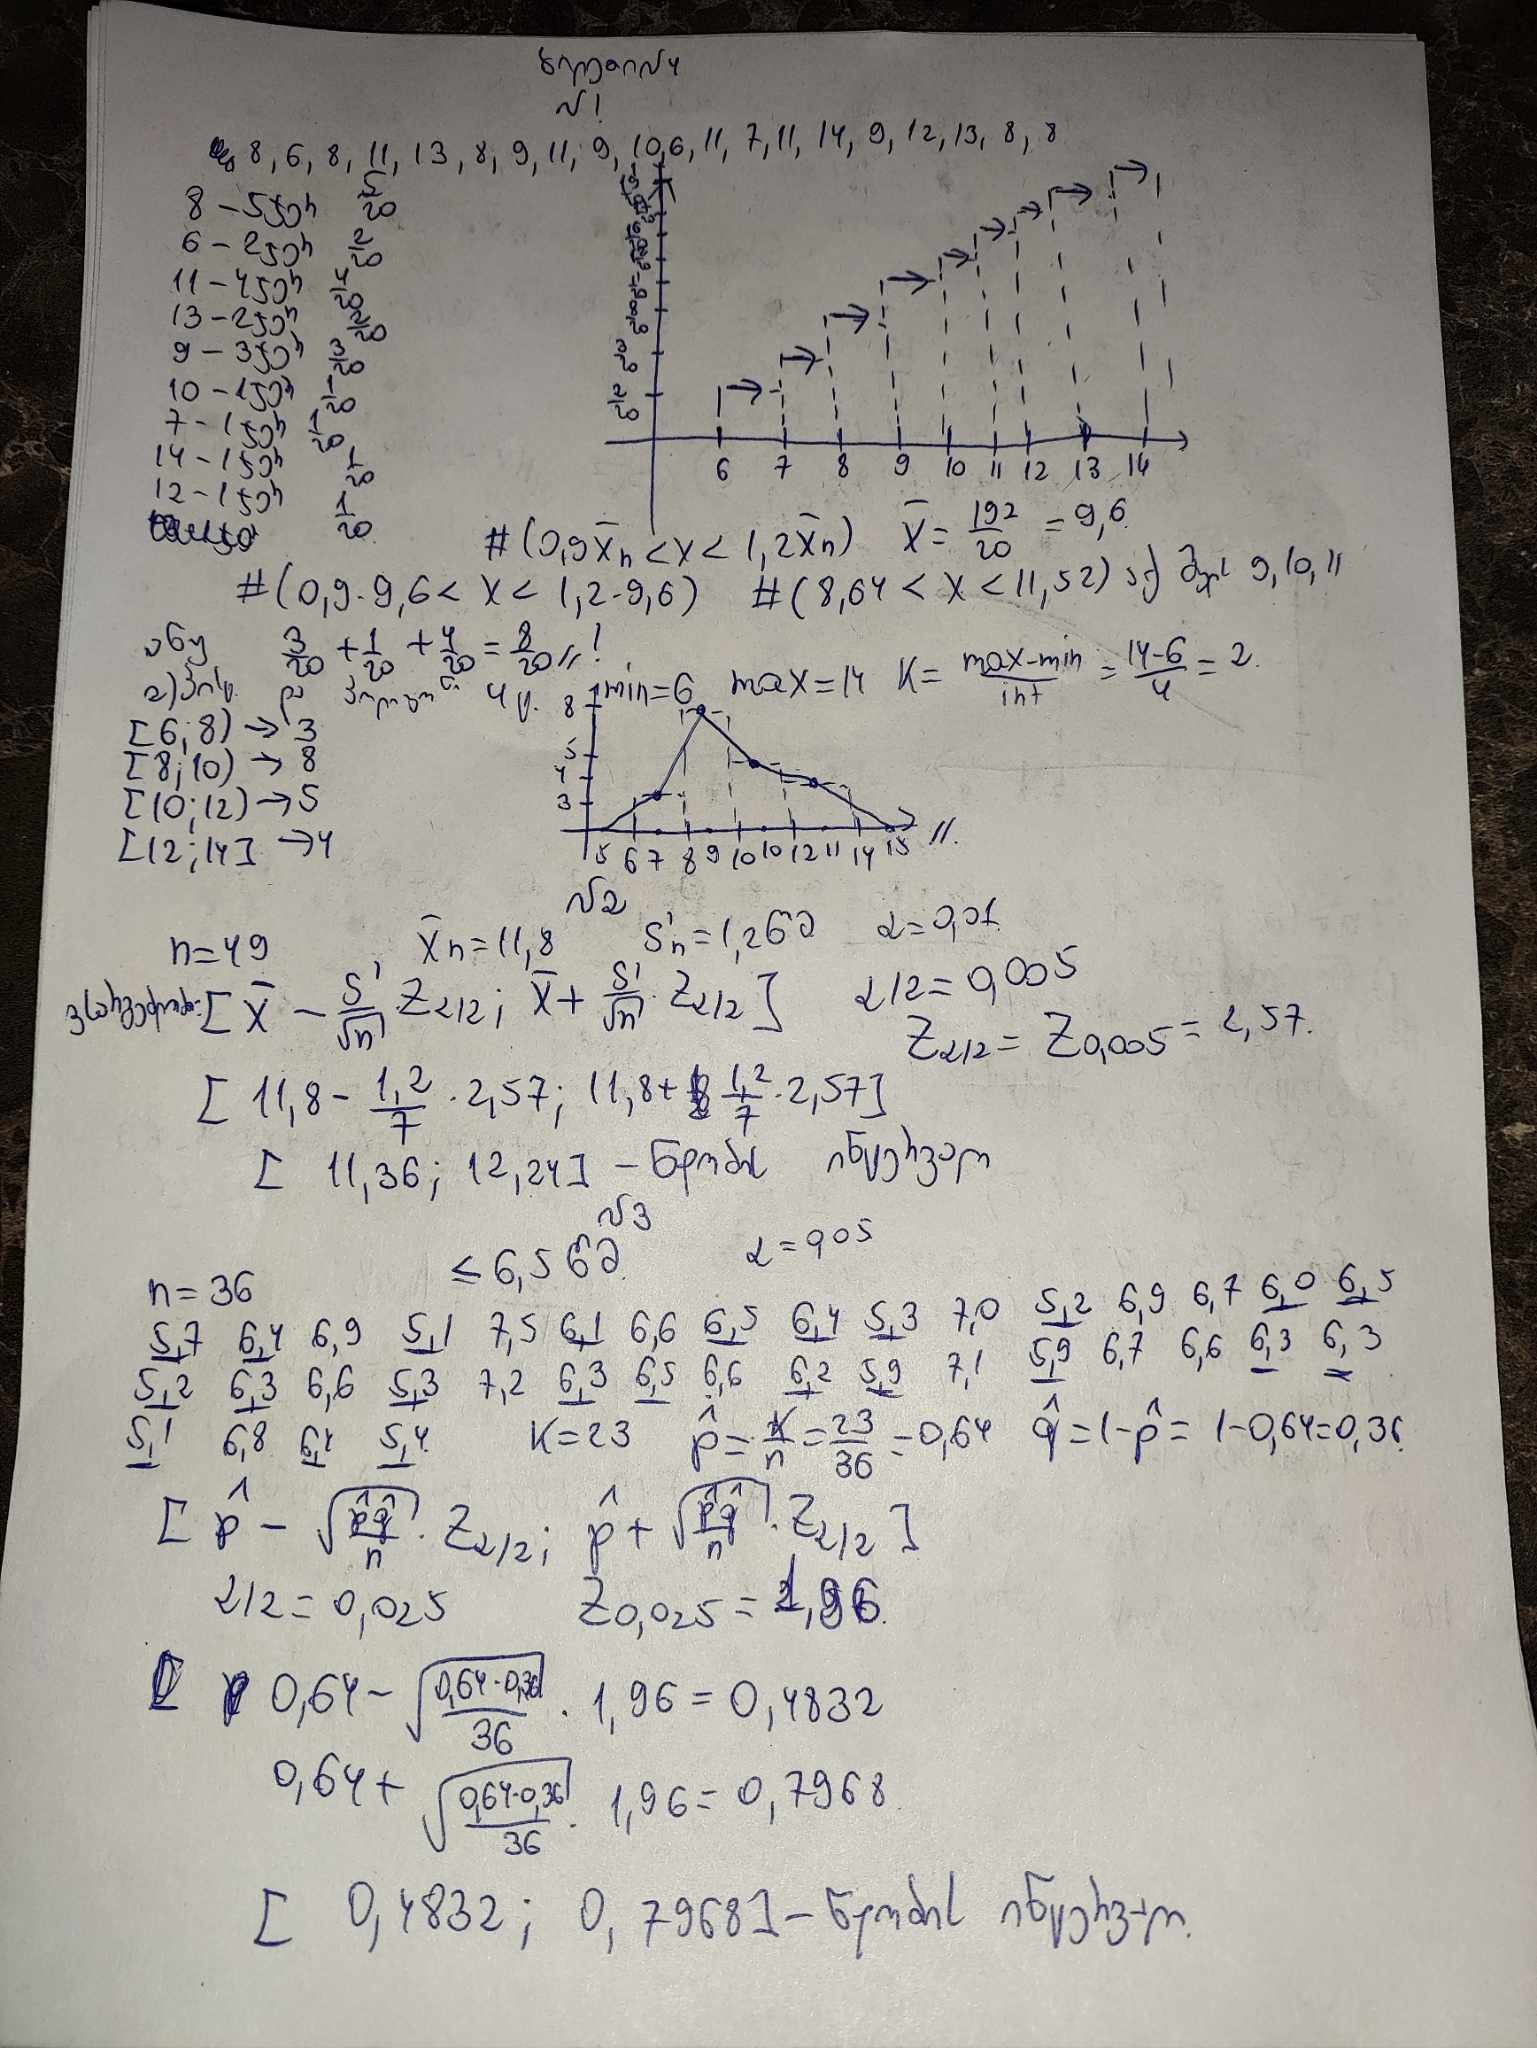 ბილეთი N4
N1
8, 6, 8, 11, 13, 8, 9, 11, 9, 10, 6, 11, 7, 11, 14, 9, 12, 13, 8, 8
8 – 5ჯერ 5/20
6 – 2ჯერ 2/20
11 – 4ჯერ 4/20
13 – 2ჯერ 2/20
9 – 3ჯერ 3/20
10 – 1ჯერ 1/20
7 – 1ჯერ 1/20
14 – 1ჯერ 1/20
12 – 1ჯერ 1/20
2/20
6 7 8 9 10 11 12 13 14
#(0,9x̄n < x < 1,2x̄n) x̄ = 192/20 = 9,6
#(0,9·9,6 < x < 1,2·9,6) #(8,64 < x < 11,52) 9, 10, 11
ანუ 3/20 + 1/20 + 4/20 = 8/20 //!
და 4 min=6 max=14 K = max-min/int = 14-6/4 = 2.
[6;8) → 3
[8;10) → 8
[10;12) → 5
[12;14] → 4
8
5
4
3
5 6 7 8 9 10 10 12 11 14 15 //.
N2
n=49 x̄n=11,8 S'n=1,2წმ α=0,01
[x̄ – S'/√n Zα/2; x̄ + S'/√n · Zα/2] α/2=0,005
Zα/2 = Z0,005 = 2,57.
[11,8 – 1,2/7 · 2,57; 11,8 + 1,2/7 · 2,57]
[11,36; 12,24] – ნდობის ინტერვალი
N3
n=36 ≤6,5 წმ α=0,05
5,7 6,4 6,9 5,1 7,5 6,1 6,6 6,5 6,4 5,3 7,0 5,2 6,9 6,7 6,0 6,5
5,2 6,3 6,6 5,3 7,2 6,3 6,5 6,6 6,2 5,9 7,1 5,9 6,7 6,6 6,3 6,3
5,1 6,8 6,4 5,4 K=23 p̂ = K/n = 23/36 = 0,64 q̂ = 1-p̂ = 1-0,64=0,36
[p̂ – √p̂q̂/n · Zα/2; p̂ + √p̂q̂/n · Zα/2]
α/2 = 0,025 Z0,025 = 1,96
0,64 – √0,64·0,36/36 · 1,96 = 0,4832
0,64 + √0,64·0,36/36 · 1,96 = 0,7968
[0,4832; 0,7968] – ნდობის ინტერვალი.